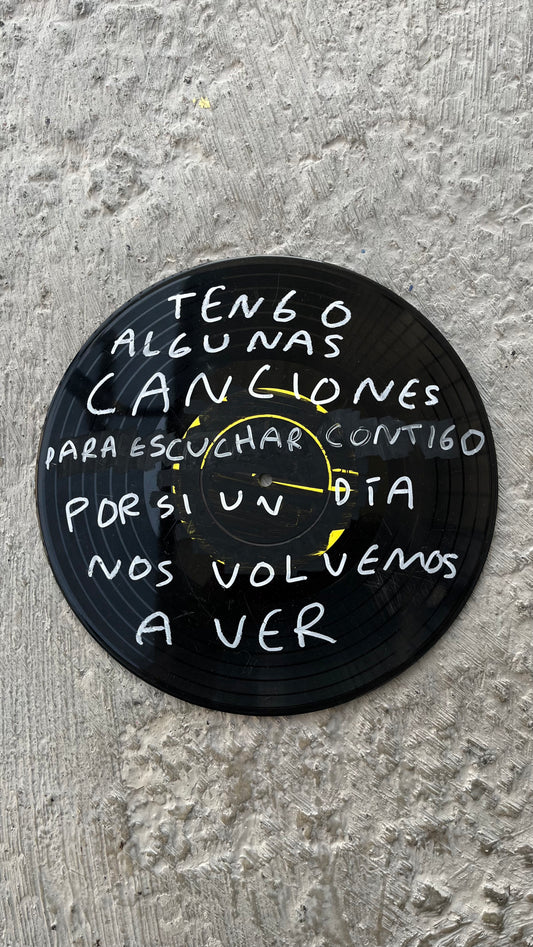 TENGO
ALGUNAS
CANCIONES
PARA ESCUCHAR CONTIGO
POR SI UN DÍA
NOS VOLVEMOS
A VER